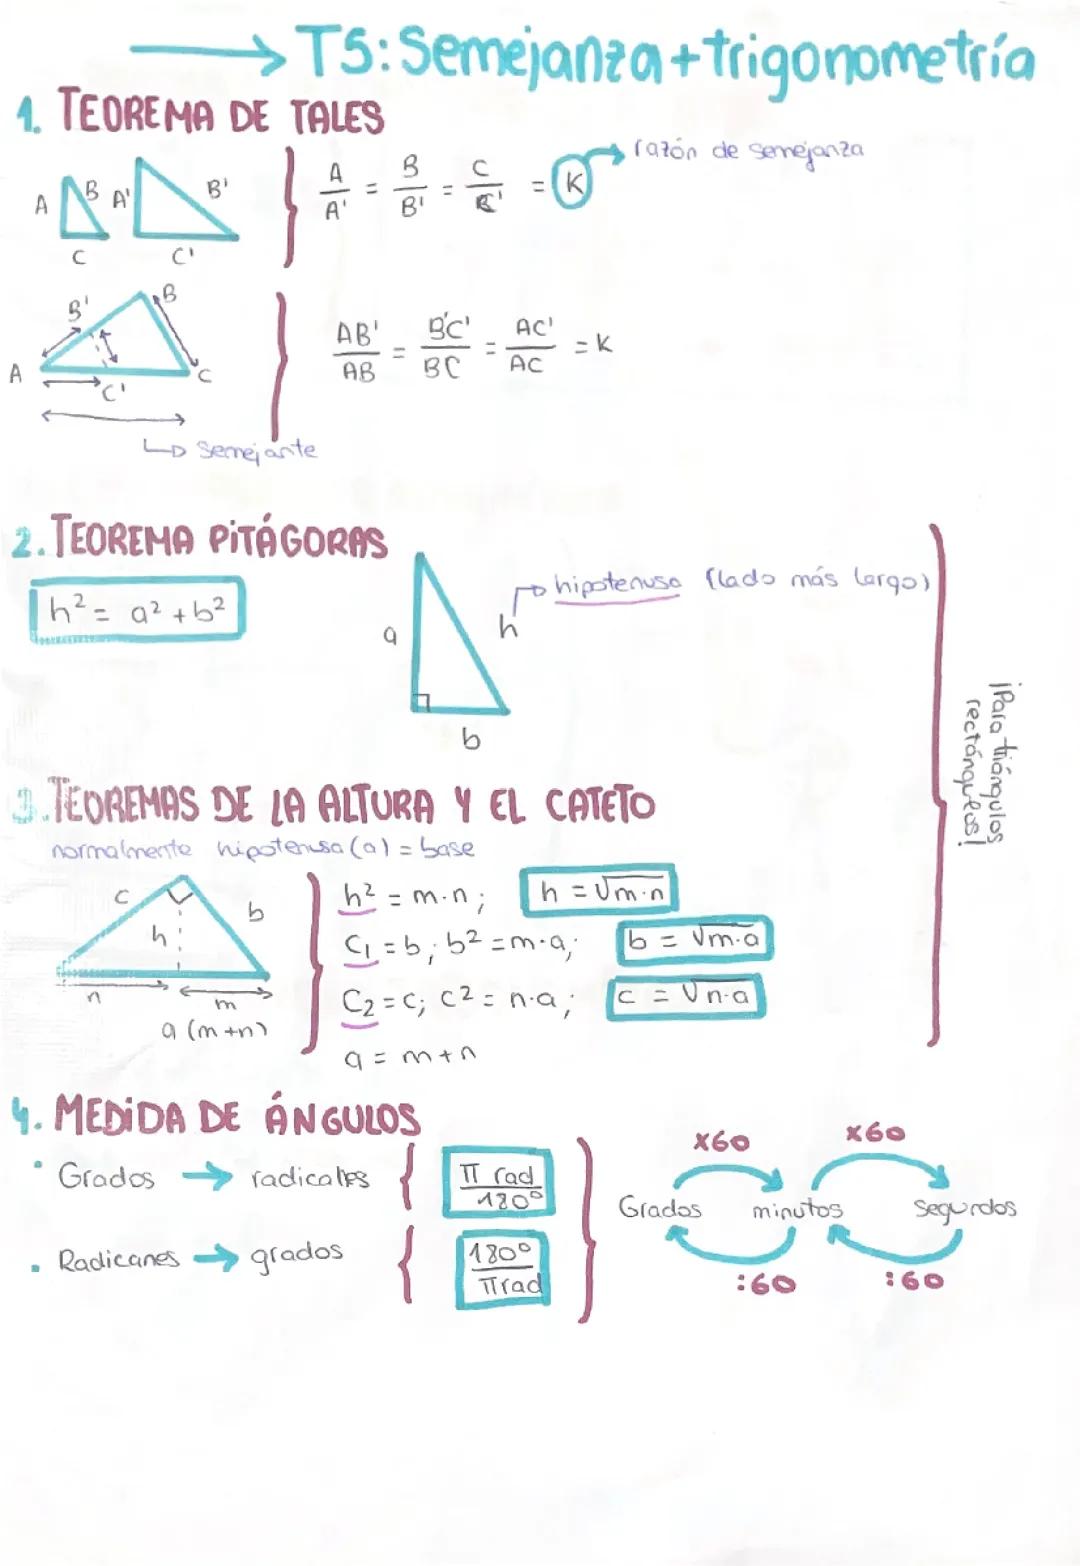 → T5: Semejanza + trigonometría
1. TEOREMA DE TALES
A B C A' B' C'
A/A' = B/B' = C/C' = K → razón de semejanza
A B' B C' C
AB'/AB = B'C'/BC = AC'/AC = K
↳ Semejante
2. TEOREMA PiTÁGORAS
h² = a² + b²
a h b
→ hipotenusa (lado más largo)
¡Para triángulos
rectángulos!
3. TEOREMAS DE LA ALTURA Y EL CATETO
normalmente hipotenusa (a) = base
c b h n m
a (m+n)
h² = m·n; h = √m·n
C₁ = b; b² = m·a; b = √m·a
C₂ = c; c² = n·a; c = √n·a
a = m+n
4. MEDiDA DE ÁNGULOS
· Grados → radicales { π rad/180°
· Radicanes → grados { 180°/π rad
x60 x60
Grados minutos Segundos
:60 :60